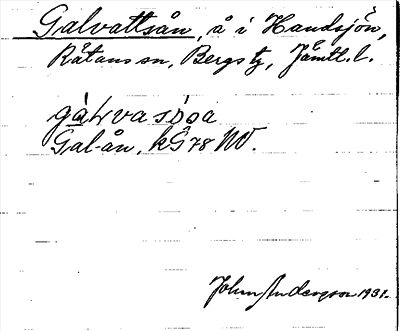 Galvattsån, å i Handsjön,
Råtans sn, Bergs tg, Jämtl. l.
Gal-ån, kG 78 NV.
John Anderson 1931.